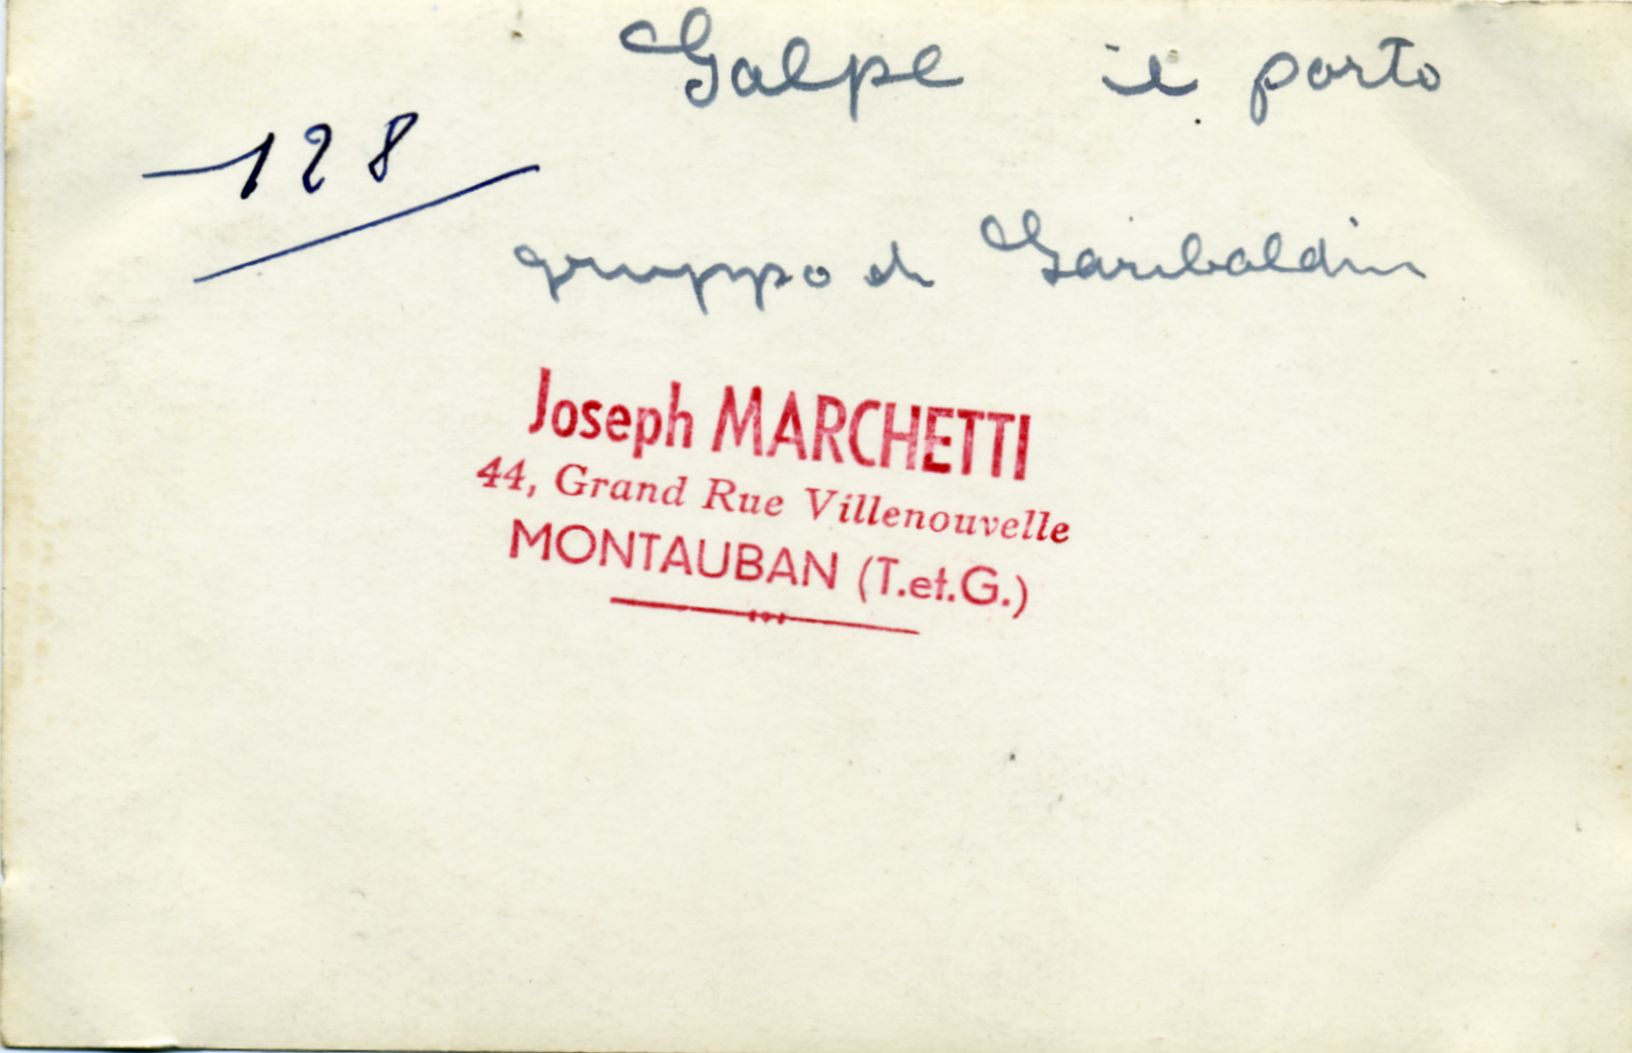 Galpe il porto
128
gruppo di Garibaldini
Joseph MARCHETTI
44, Grand Rue Villenouvelle
MONTAUBAN (T.et.G.)